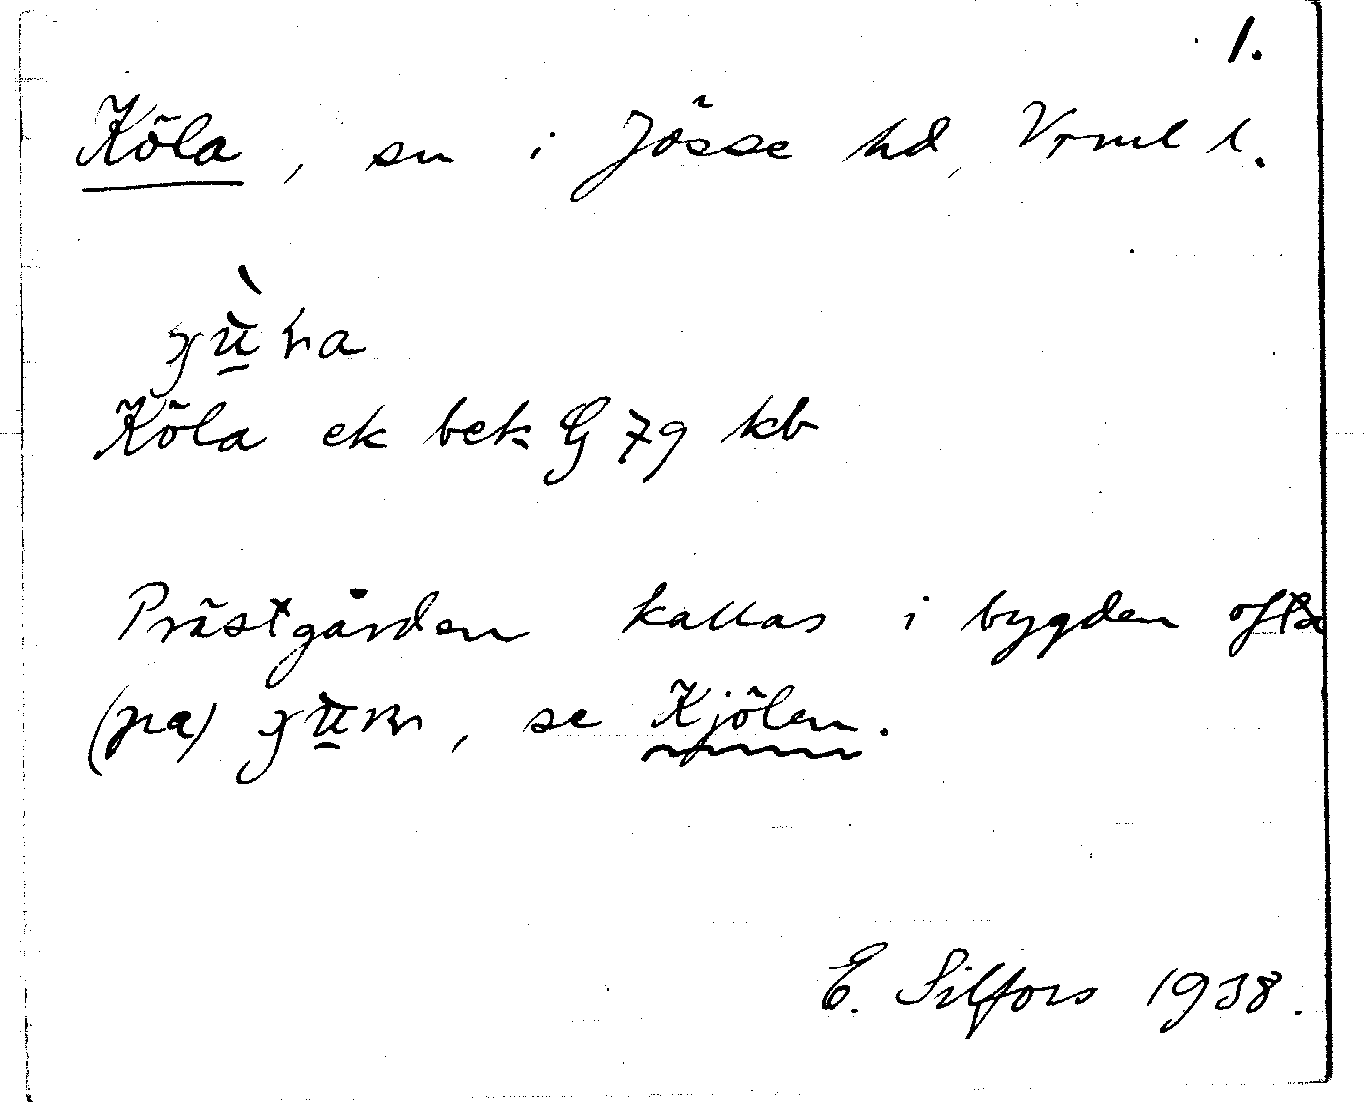 1.
Köla, sn i Jösse hd, Vrml l.
Köla ek bek G 79 kb
Prästgården kallas i bygden ofta
(pra) , se Kjölen.
E. Silfors 1938.